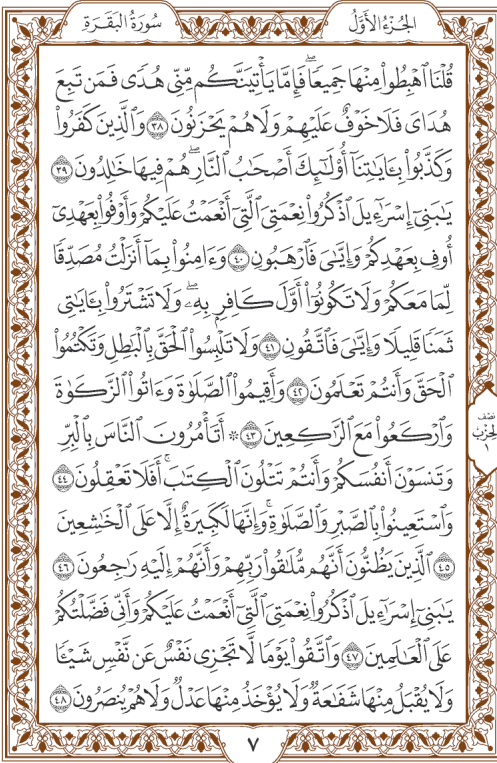 الجُزْءُ الأَوَّلُ
سُورَةُ البَقَرَةِ
قُلْنَا ٱهْبِطُوا۟ مِنْهَا جَمِيعًاۖ فَإِمَّا يَأْتِيَنَّكُم مِّنِّى هُدًى فَمَن تَبِعَ
هُدَاىَ فَلَا خَوْفٌ عَلَيْهِمْ وَلَا هُمْ يَحْزَنُونَ ٣٨ وَٱلَّذِينَ كَفَرُوا۟
وَكَذَّبُوا۟ بِـَٔايَـٰتِنَآ أُو۟لَـٰٓئِكَ أَصْحَـٰبُ ٱلنَّارِۖ هُمْ فِيهَا خَـٰلِدُونَ ٣٩
يَـٰبَنِىٓ إِسْرَٰٓءِيلَ ٱذْكُرُوا۟ نِعْمَتِىَ ٱلَّتِىٓ أَنْعَمْتُ عَلَيْكُمْ وَأَوْفُوا۟ بِعَهْدِىٓ
أُوفِ بِعَهْدِكُمْ وَإِيَّـٰىَ فَٱرْهَبُونِ ٤٠ وَءَامِنُوا۟ بِمَآ أَنزَلْتُ مُصَدِّقًا
لِّمَا مَعَكُمْ وَلَا تَكُونُوٓا۟ أَوَّلَ كَافِرٍۭ بِهِۦۖ وَلَا تَشْتَرُوا۟ بِـَٔايَـٰتِى
ثَمَنًا قَلِيلًا وَإِيَّـٰىَ فَٱتَّقُونِ ٤١ وَلَا تَلْبِسُوا۟ ٱلْحَقَّ بِٱلْبَـٰطِلِ وَتَكْتُمُوا۟
ٱلْحَقَّ وَأَنتُمْ تَعْلَمُونَ ٤٢ وَأَقِيمُوا۟ ٱلصَّلَوٰةَ وَءَاتُوا۟ ٱلزَّكَوٰةَ
وَٱرْكَعُوا۟ مَعَ ٱلرَّٰكِعِينَ ٤٣ ۞ أَتَأْمُرُونَ ٱلنَّاسَ بِٱلْبِرِّ
وَتَنسَوْنَ أَنفُسَكُمْ وَأَنتُمْ تَتْلُونَ ٱلْكِتَـٰبَۚ أَفَلَا تَعْقِلُونَ ٤٤
وَٱسْتَعِينُوا۟ بِٱلصَّبْرِ وَٱلصَّلَوٰةِۚ وَإِنَّهَا لَكَبِيرَةٌ إِلَّا عَلَى ٱلْخَـٰشِعِينَ
٤٥ ٱلَّذِينَ يَظُنُّونَ أَنَّهُم مُّلَـٰقُوا۟ رَبِّهِمْ وَأَنَّهُمْ إِلَيْهِ رَٰجِعُونَ ٤٦
يَـٰبَنِىٓ إِسْرَٰٓءِيلَ ٱذْكُرُوا۟ نِعْمَتِىَ ٱلَّتِىٓ أَنْعَمْتُ عَلَيْكُمْ وَأَنِّى فَضَّلْتُكُمْ
عَلَى ٱلْعَـٰلَمِينَ ٤٧ وَٱتَّقُوا۟ يَوْمًا لَّا تَجْزِى نَفْسٌ عَن نَّفْسٍ شَيْـًٔا
وَلَا يُقْبَلُ مِنْهَا شَفَـٰعَةٌ وَلَا يُؤْخَذُ مِنْهَا عَدْلٌ وَلَا هُمْ يُنصَرُونَ ٤٨
نصف
الحزب
١
٧